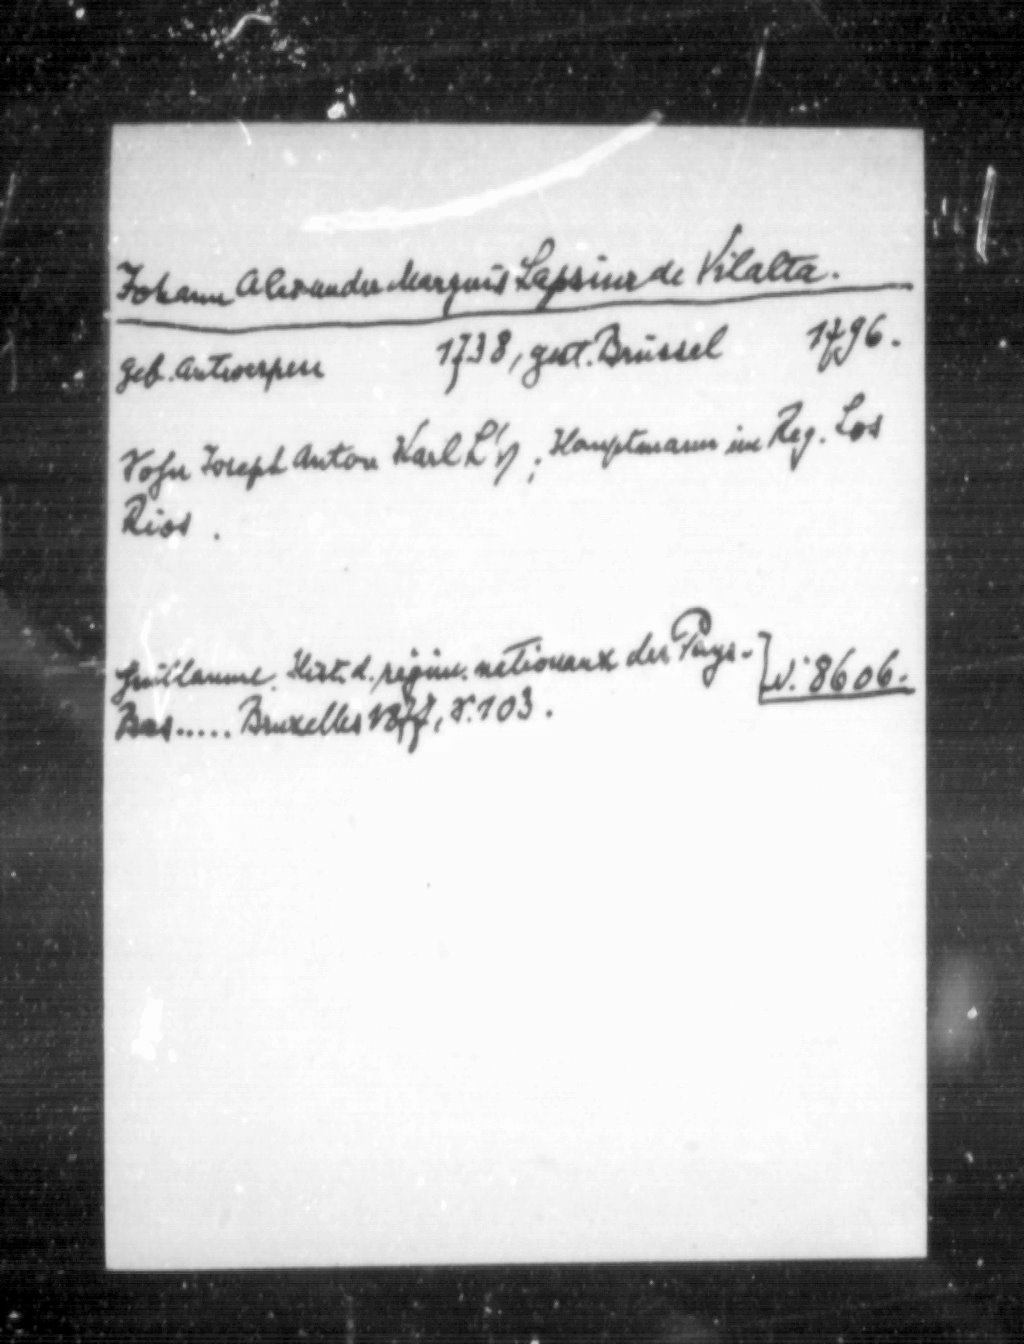 Johann Alexander Marquis Lapsiur de Vilalta.
geb. Antwerpen 1738, gest. Brüssel 1796.
Sohn Joseph Anton Karl L's; Hauptmann im Reg. Los
Rios.
Guillaume. Hist. d. régim. nationaux des Pays-
Bas..... Bruxelles 1877, S. 103. N. 8606.